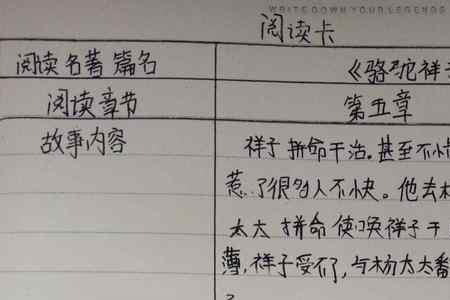 WRITE DOWN YOUR LEGENDS
阅读卡
阅读名著篇名 《骆驼祥
阅读章节 第五章
故事内容 祥子拼命干活.甚至不
惹了很多人不快。他去
太太拼命使唤祥子干
薄,祥子受不了,与杨太太